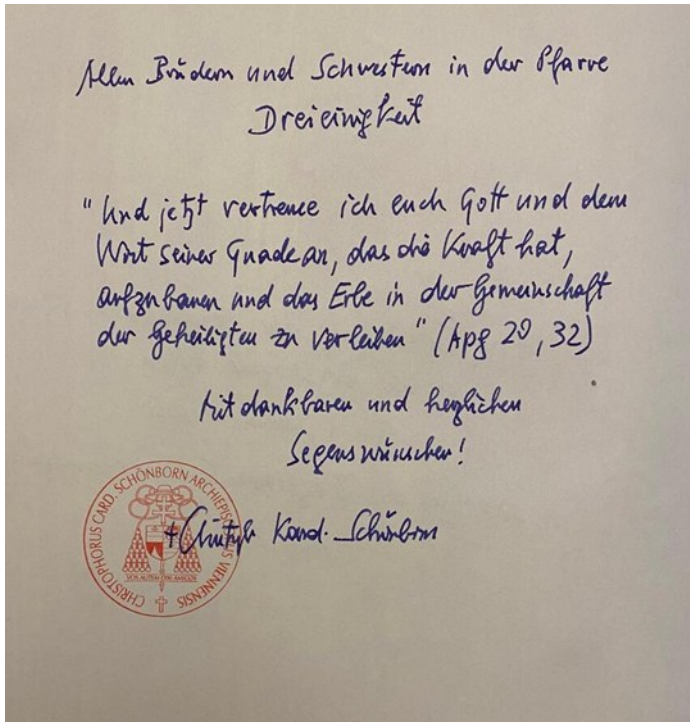 Allen Brüdern und Schwestern in der Pfarre
Dreieinigkeit
"Und jetzt vertraue ich euch Gott und dem
Wort seiner Gnade an, das die Kraft hat,
aufzubauen und das Erbe in der Gemeinschaft
der Geheiligten zu verleihen" (Apg 20, 32)
Mit dankbaren und herzlichen
Segenswünschen!
+ Christoph Kard. Schönborn
CHRISTOPHORUS CARD. SCHÖNBORN ARCHIEPISCOPUS VIENNENSIS
VOS AUTEM DIXI AMICOS